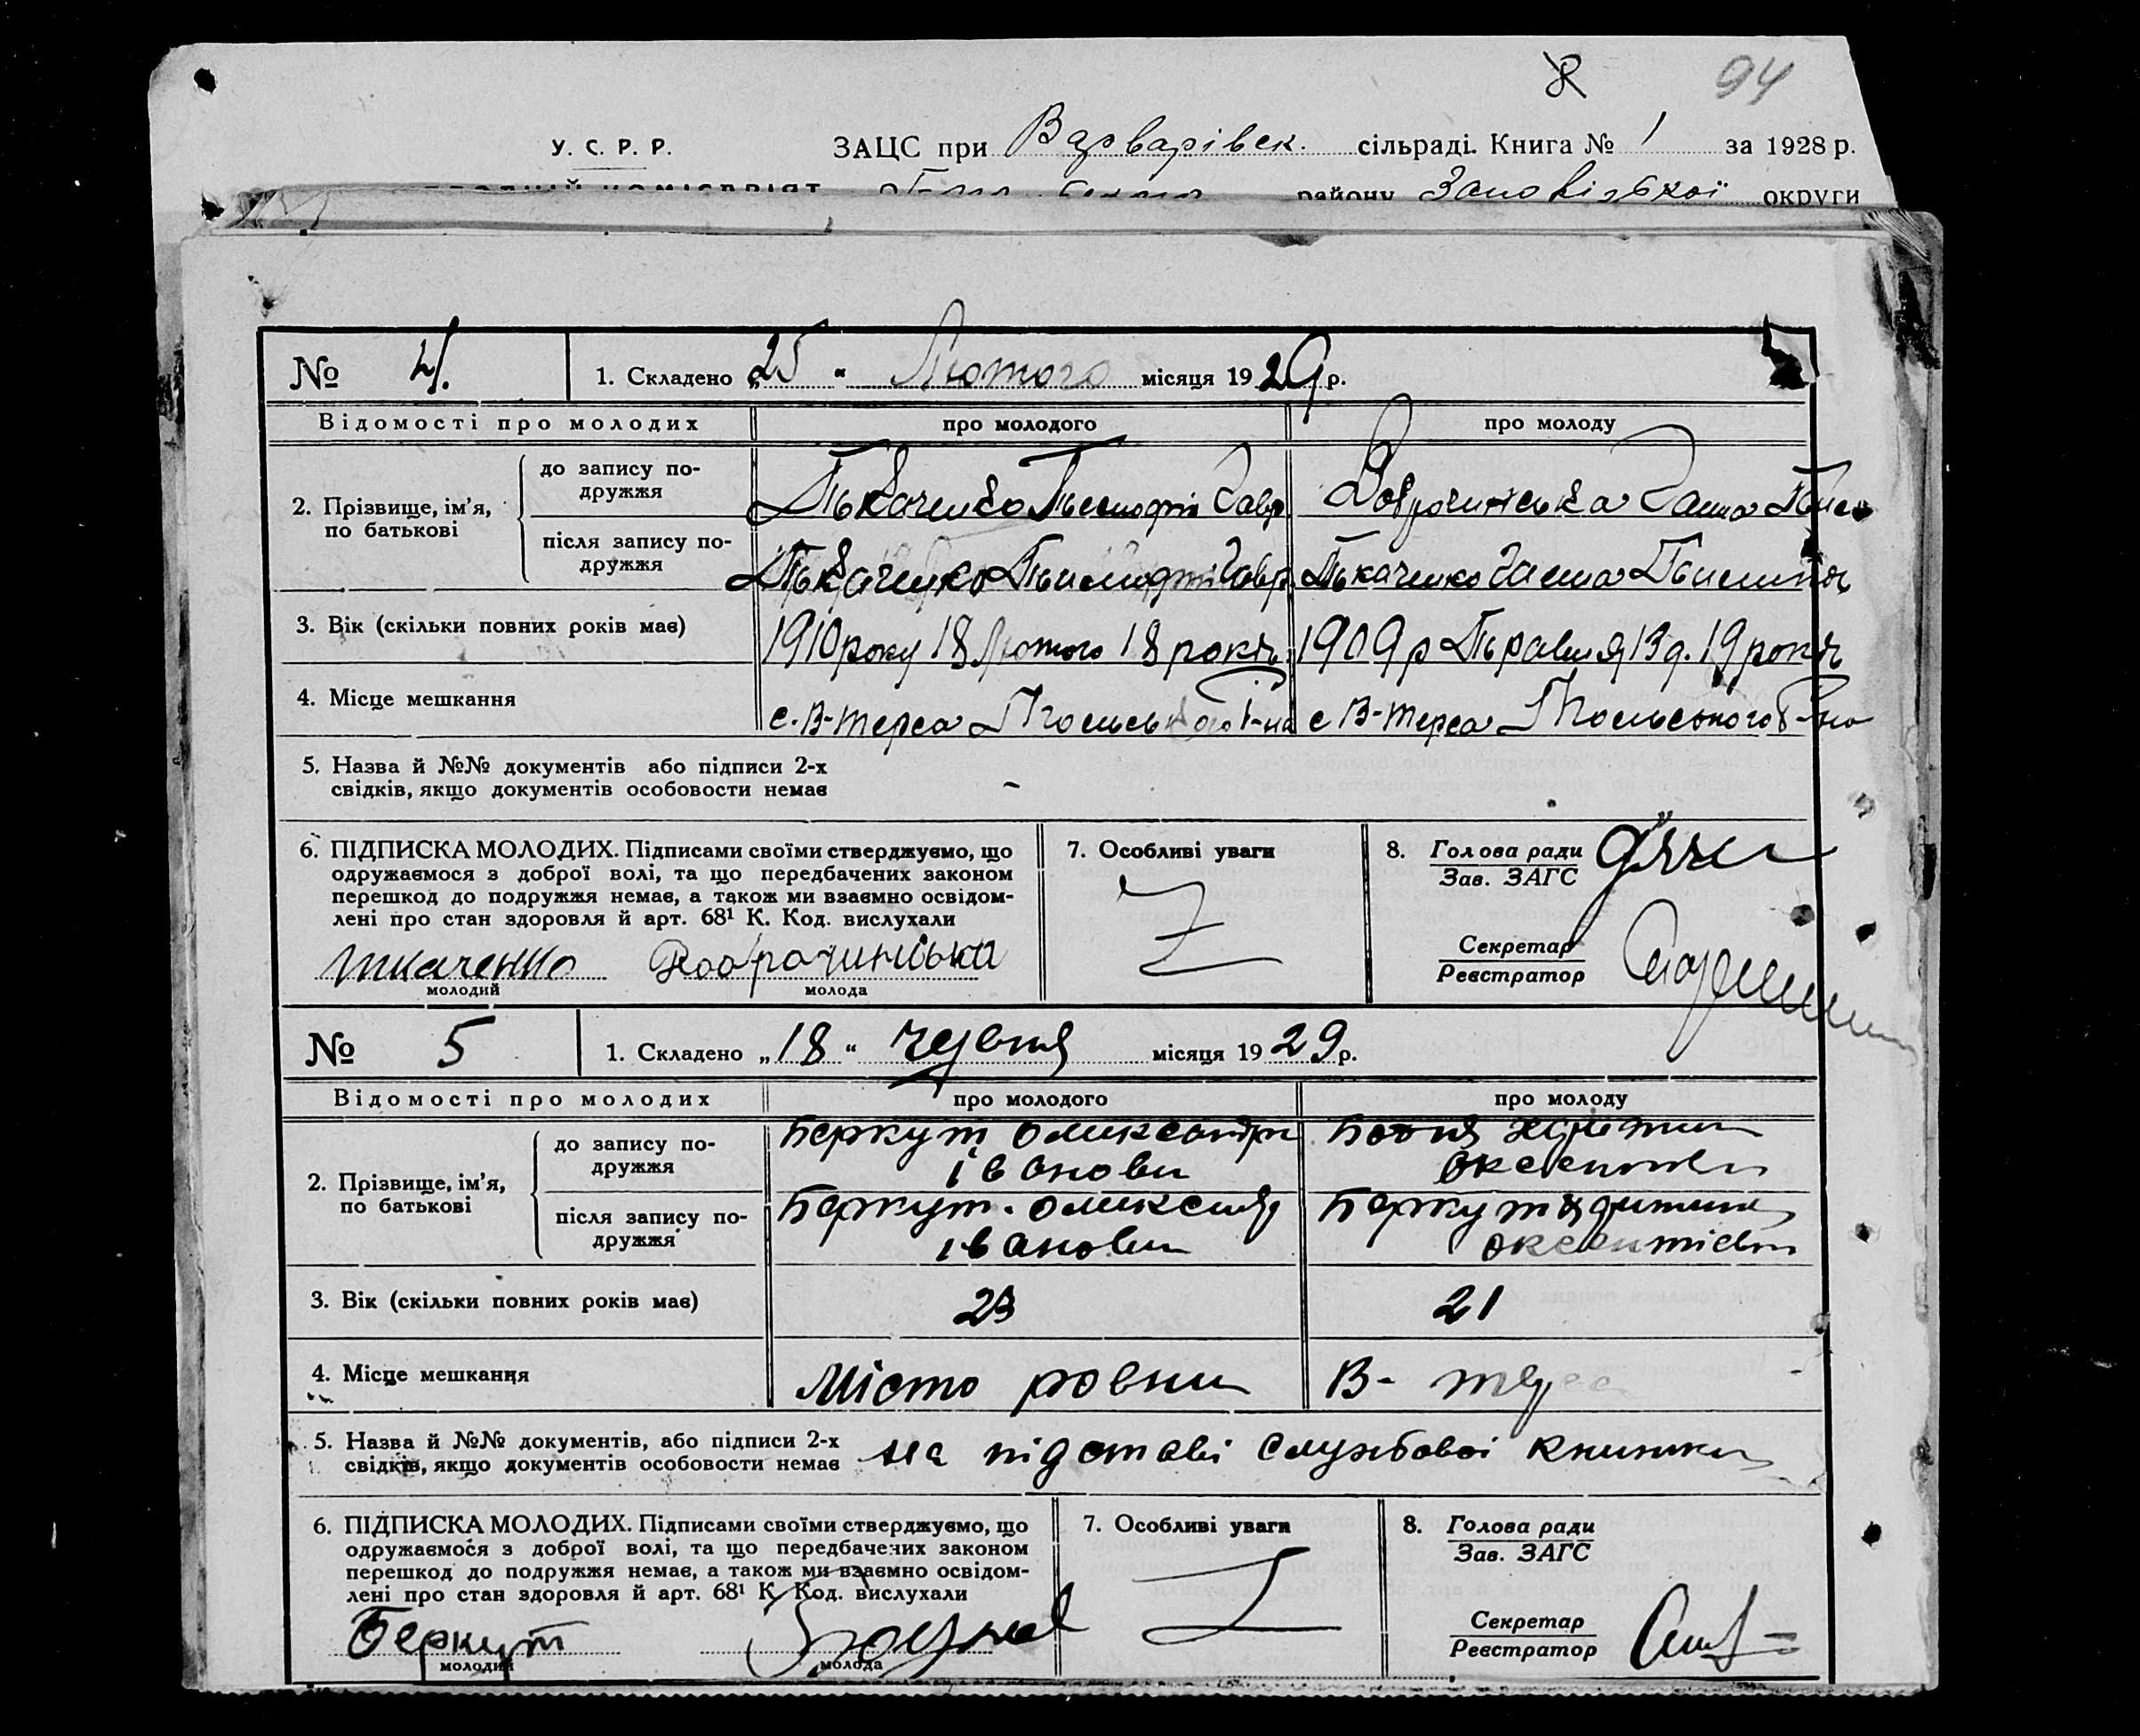 94
У. С. Р. Р. ЗАЦС при Варварівськ. сільраді. Книга № 1 за 1928 р.
району округи
№ 4. 1. Складено „25“ Лютого місяця 1929 р.
Відомості про молодих про молодого про молоду
2. Прізвище, ім'я, по батькові
до запису по-
дружжя
Ткаченко Тимофій Гавр. Доброчинська Ганна
після запису по-
дружжя
Ткаченко Тимофій Гавр. Ткаченко Ганна
3. Вік (скільки повних років має) 1910 року 18 Лютого 18 років 1909 р Травня 13 д. 19 років
4. Місце мешкання с. В-терса Польського р-на с В-терса Польського р-на
5. Назва й №№ документів або підписи 2-х
свідків, якщо документів особовости немає -
6. ПІДПИСКА МОЛОДИХ. Підписами своїми стверджуємо, що
одружаємося з доброї волі, та що передбачених законом
перешкод до подружжя немає, а також ми взаємно освідом-
лені про стан здоровля й арт. 68¹ К. Код. вислухали
ткаченко Доброчинська
молодий молода
7. Особливі уваги
8. Голова ради
Зав. ЗАГС
Секретар
Реєстратор
№ 5 1. Складено „18“ червня місяця 1929 р.
Відомості про молодих про молодого про молоду
2. Прізвище, ім'я, по батькові
до запису по-
дружжя
Беркут Олександр
іванови
після запису по-
дружжя
Беркут. Олександр Беркут
іванови
3. Вік (скільки повних років має) 23 21
4. Місце мешкання Місто ровни В- терса
5. Назва й №№ документів, або підписи 2-х
свідків, якщо документів особовости немає на підставі службової книжки
6. ПІДПИСКА МОЛОДИХ. Підписами своїми стверджуємо, що
одружаємося з доброї волі, та що передбачених законом
перешкод до подружжя немає, а також ми взаємно освідом-
лені про стан здоровля й арт. 68¹ К. Код. вислухали
Беркут
молодий молода
7. Особливі уваги
8. Голова ради
Зав. ЗАГС
Секретар
Реєстратор